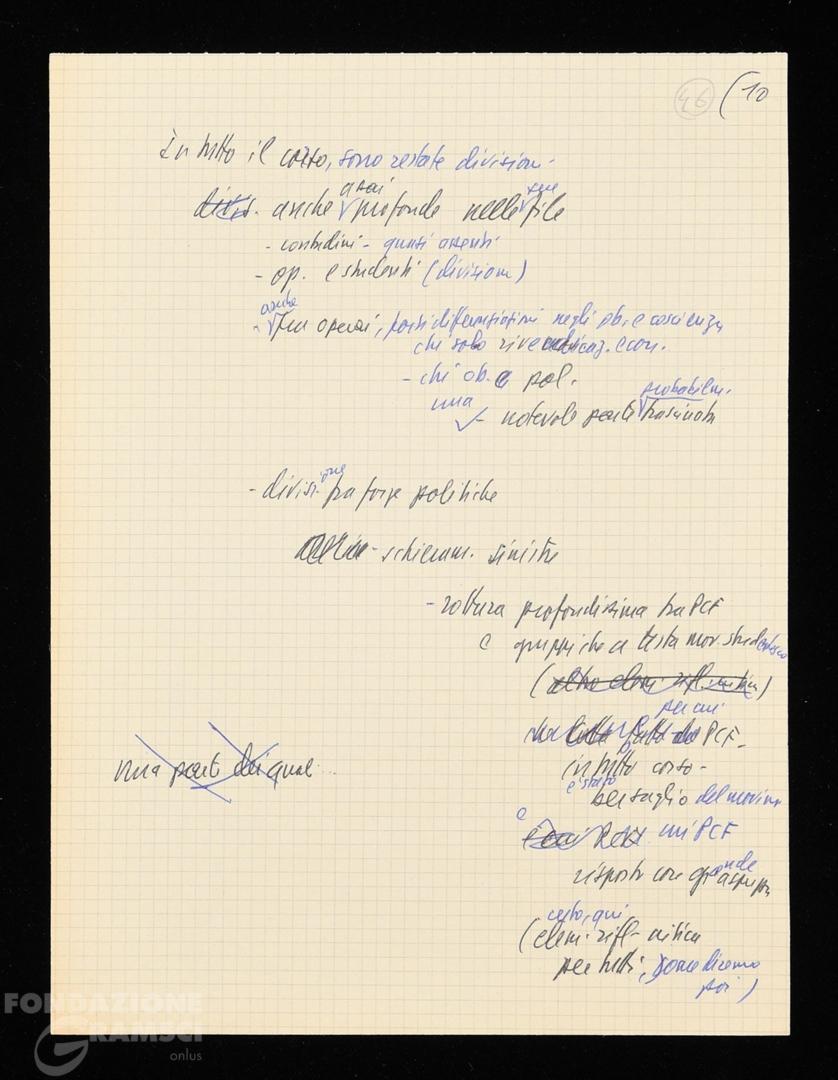 46 (10
In tutto il corso, sono restate division.
divis. anche assai profonde nelle sue file
- contadini - quasi assenti
- op. e studenti (divisioni)
- anche tra operai, forti differenziazioni negli ob. e coscienza
chi solo rivendicaz. econ.
- chi ob. e pol.
- una notevole parte probabilm. trascinata
- divisione fra forze politiche
- schieram. sinistre
- rottura profondissima tra PCF
e gruppi che a testa mov. studentesco
(altro elem. rifl. critica)
per cui
PCF -
in tutto corso -
è stato bersaglio del movim
una parte dei quali...
e
cui PCF
risposto con grande asprezza
certo, qui
(elem. rifl. critica
per tutti, come diremo
poi)
FONDAZIONE
GRAMSCI
onlus